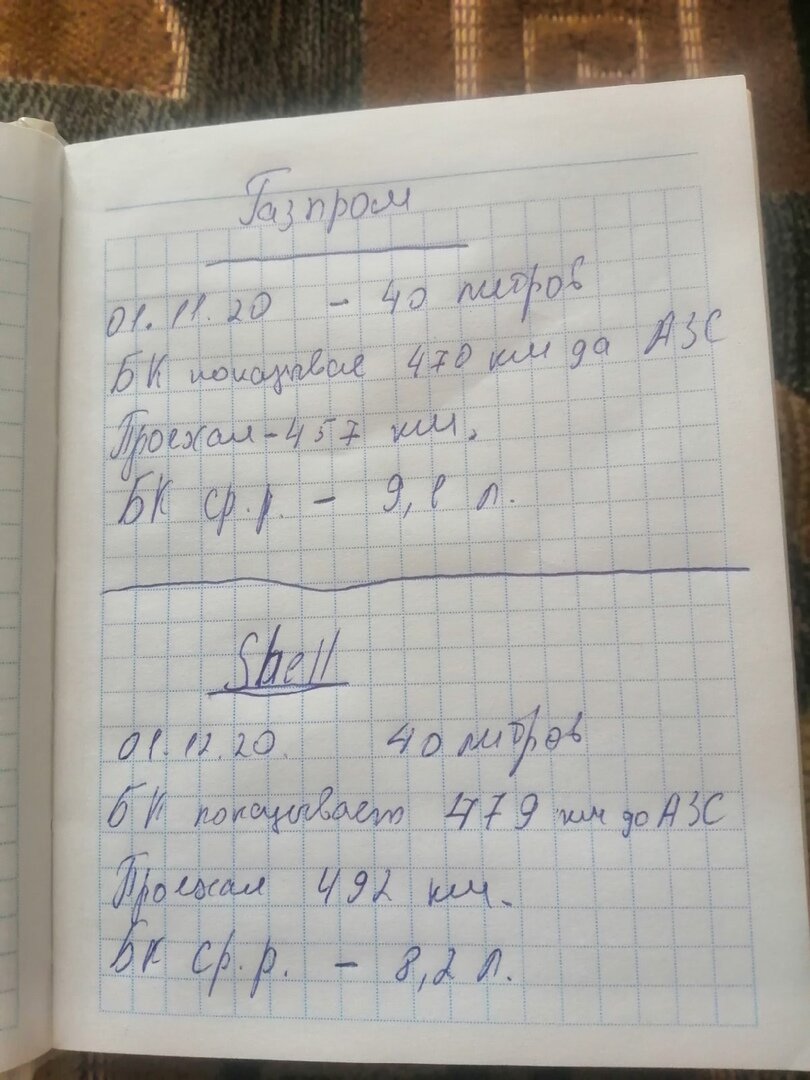 Газпром
01.11.20 - 40 литров
БК показывал 470 км до АЗС
Проехал - 457 км.
БК ср.р. - 9,1 л.
Shell
01.12.20. 40 литров
БК показывает 479 км до АЗС
Проехал 492 км.
БК ср.р. - 8,2 л.